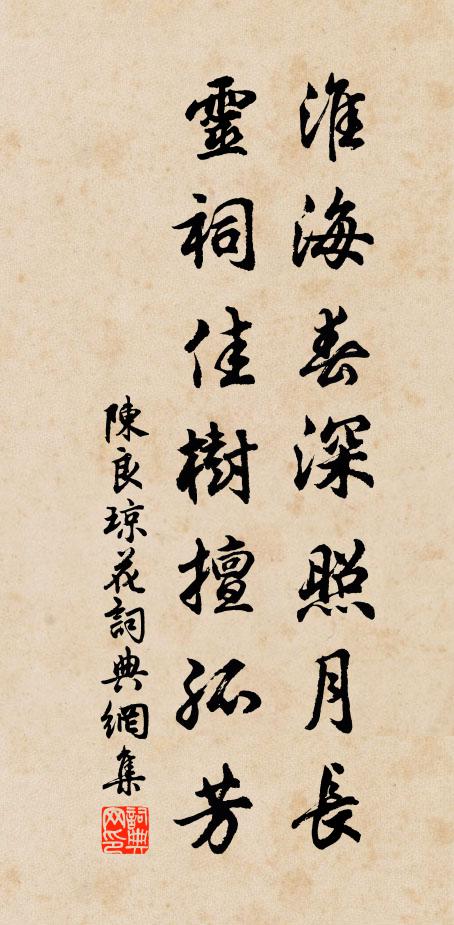 淮海春深照月長
靈祠佳樹擅孤芳
陳良瓊花詞典網集
詞典網印